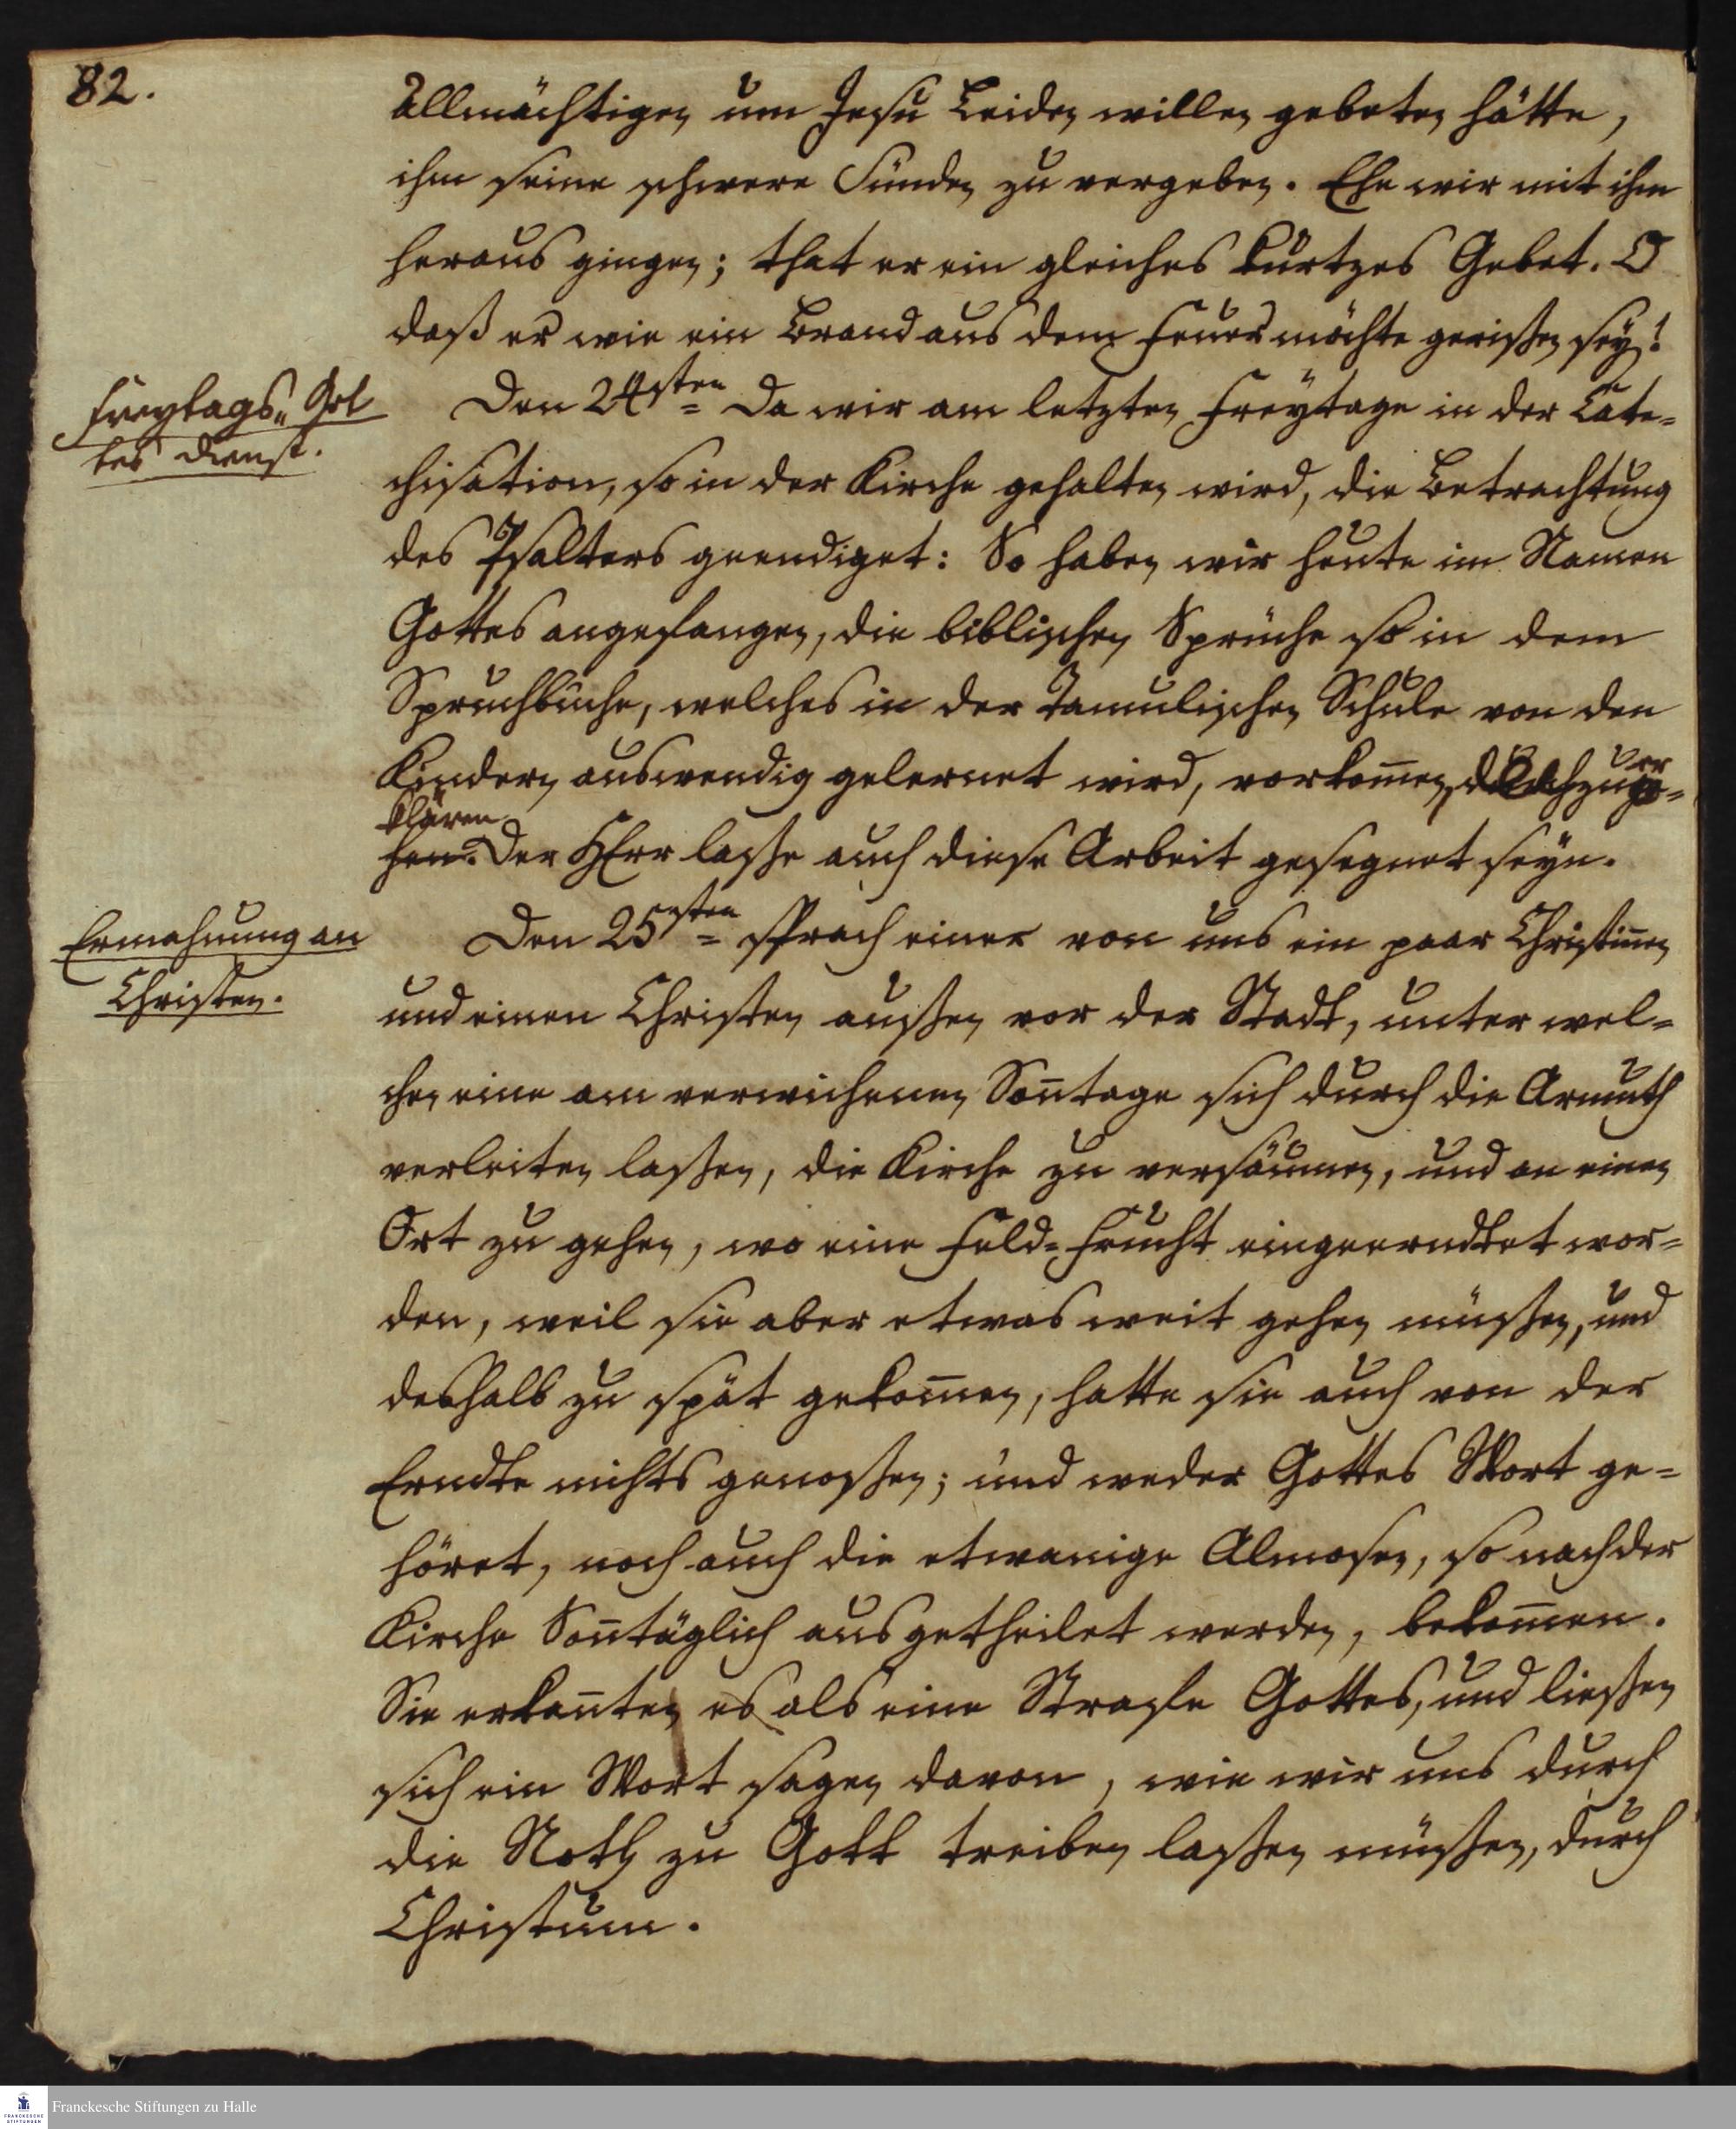 82.
Allmächtigen um Jesu Leiden willen gebeten hätte,
ihm seine schwere Sünden zu vergeben. Ehe wir mit ihm
heraus gingen; that er ein gleiches kurtzes Gebet. O
daß er wie ein Brand aus dem Feuer möchte gerißen seyn!
Freytags„ Got
tes dienst.
Den 24sten= Da wir am letzten Freytage in der Cate=
chisation, so in der Kirche gehalten wird, die Betrachtung
des Psalters geendiget: So haben wir heute im Namen
Gottes angefangen, die biblischen Sprüche so in dem
Spruchbuche, welches in der Tamulischen Schule von den
Kindern auswendig gelernet wird, vorkom̄en, durchzuge= er
klären
hen. Der HErr laße auch diese Arbeit gesegnet seyn.
Ermahnung an
Christen.
Den 25sten= sprach einer von uns ein paar Christin̄en
und einen Christen außen vor der Stadt, unter wel=
chen eine am verwichenen Son̄tage sich durch die Armuth
verleiten laßen, die Kirche zu versäumen, und an einen
Ort zu gehen, wo eine Feld=Frucht eingeerndtet wor=
den, weil sie aber etwas weit gehen müßen, und
deshalb zu spät gekom̄en, hatte sie auch von der
Erndte nichts genoßen; und weder Gottes Wort ge=
höret, noch auch die etwanige Almosen, so nach der
Kirche Son̄täglich ausgetheilet werden, bekom̄en.
Sie erkan̄ten es als eine Strafe Gottes, und ließen
sich ein Wort sagen davon, wie wir uns durch
die Noth zu Gott treiben laßen müßen, durch
Christum.
FRANCKESCHE
STIFTUNGEN
Franckesche Stiftungen zu Halle